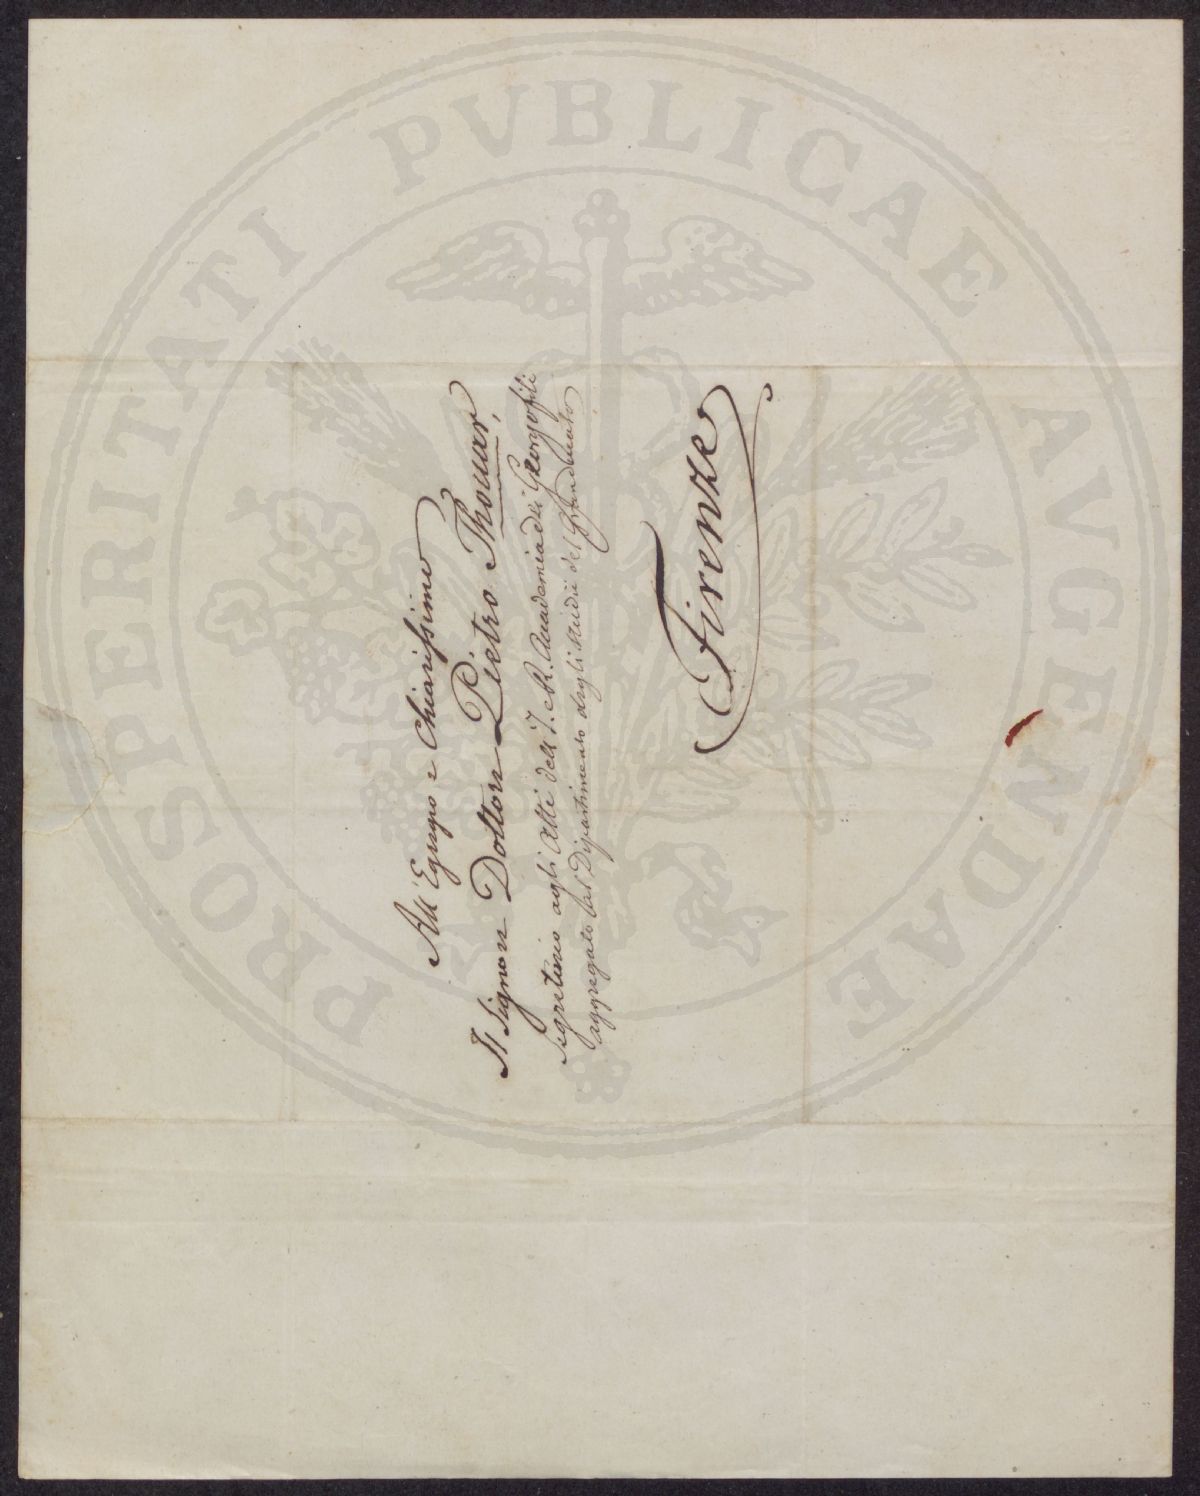 All' Egregio e Chiarissimo
Il Signore Dottore Pietro Thouar,
Segretario agli Atti dell' I. e R. Accademia dei Georgofili
aggregato al Dipartimento degli Studii del Granducato
Firenze
PROSPERITATI PVBLICAE AVGENDAE